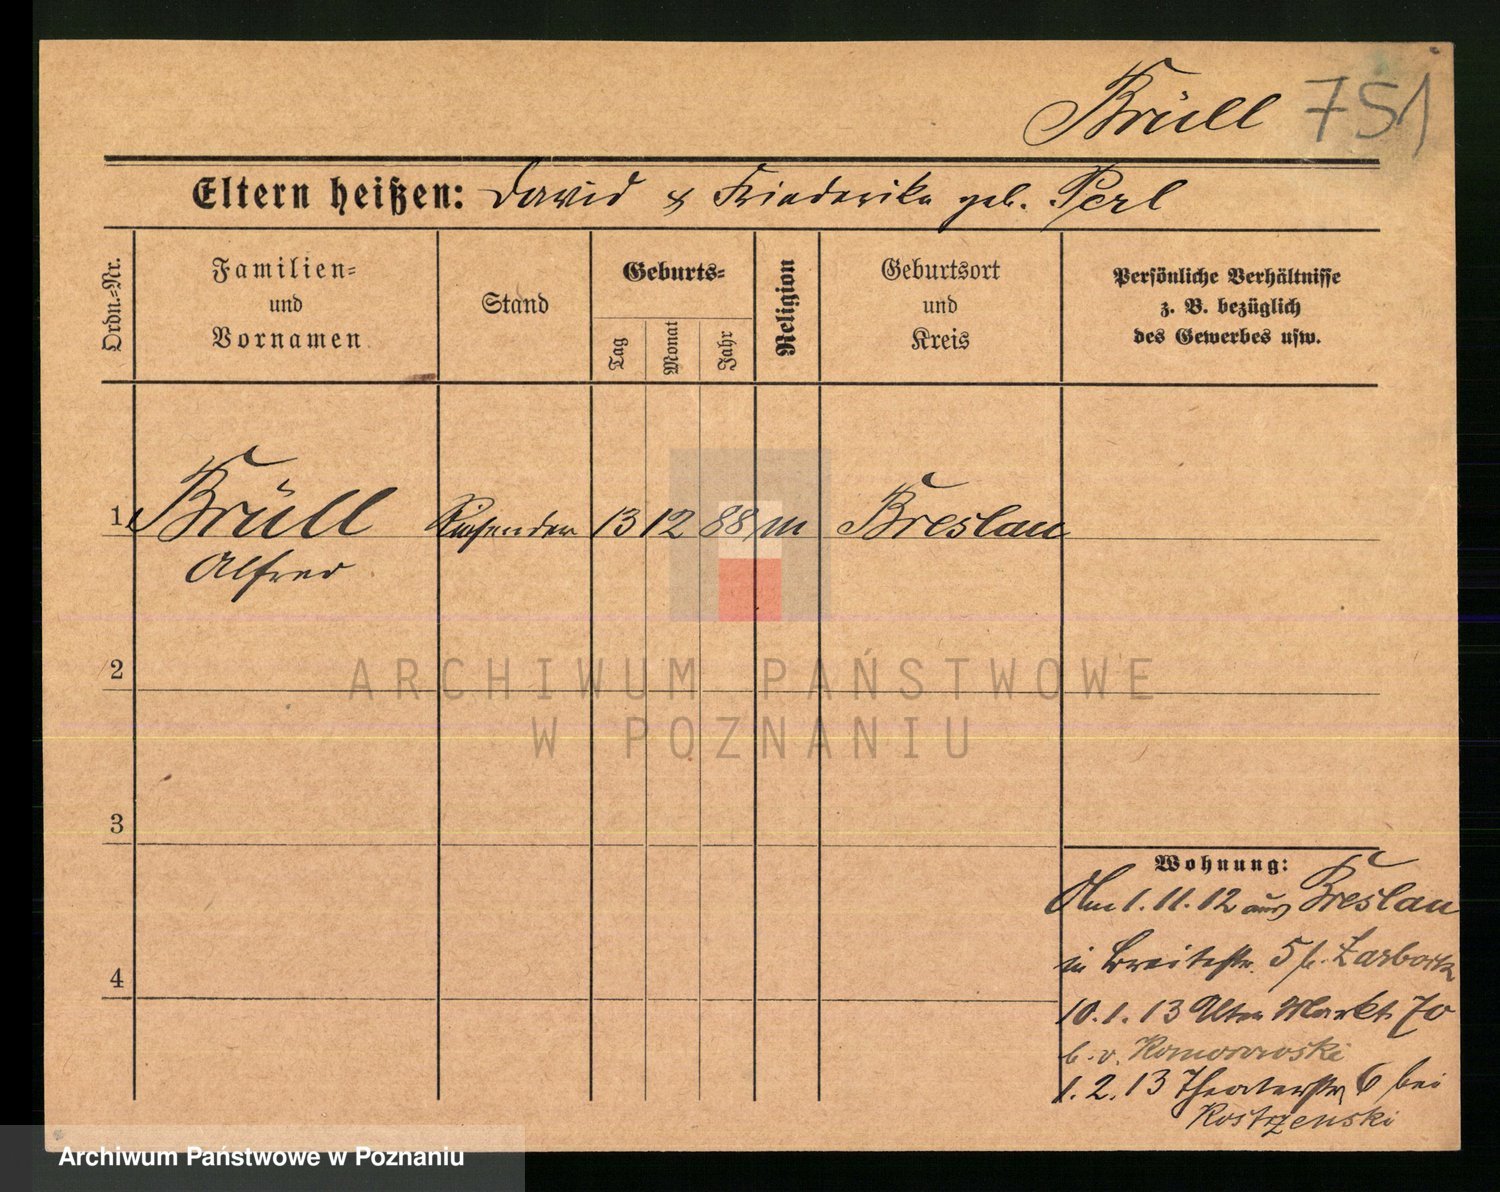 Brüll 751
Eltern heißen: David & Friederike geb. Perl
Ordn.=Nr.
Familien=
und
Vornamen
Stand
Geburts=
Tag
Monat
Jahr
Religion
Geburtsort
und
Kreis
Persönliche Verhältnisse
z. B. bezüglich
des Gewerbes usw.
1. Brüll 13 12 88 m Breslau
Alfred
2
ARCHIWUM PAŃSTWOWE
W POZNANIU
3
Wohnung:
Am 1.11.12 aus Breslau
in Breitestr. 5 b.
4
10.1.13 Alter Markt 70
b. v. Komorowski
1.2.13 Theaterstr. 6 bei
Kostrzenski
Archiwum Państwowe w Poznaniu